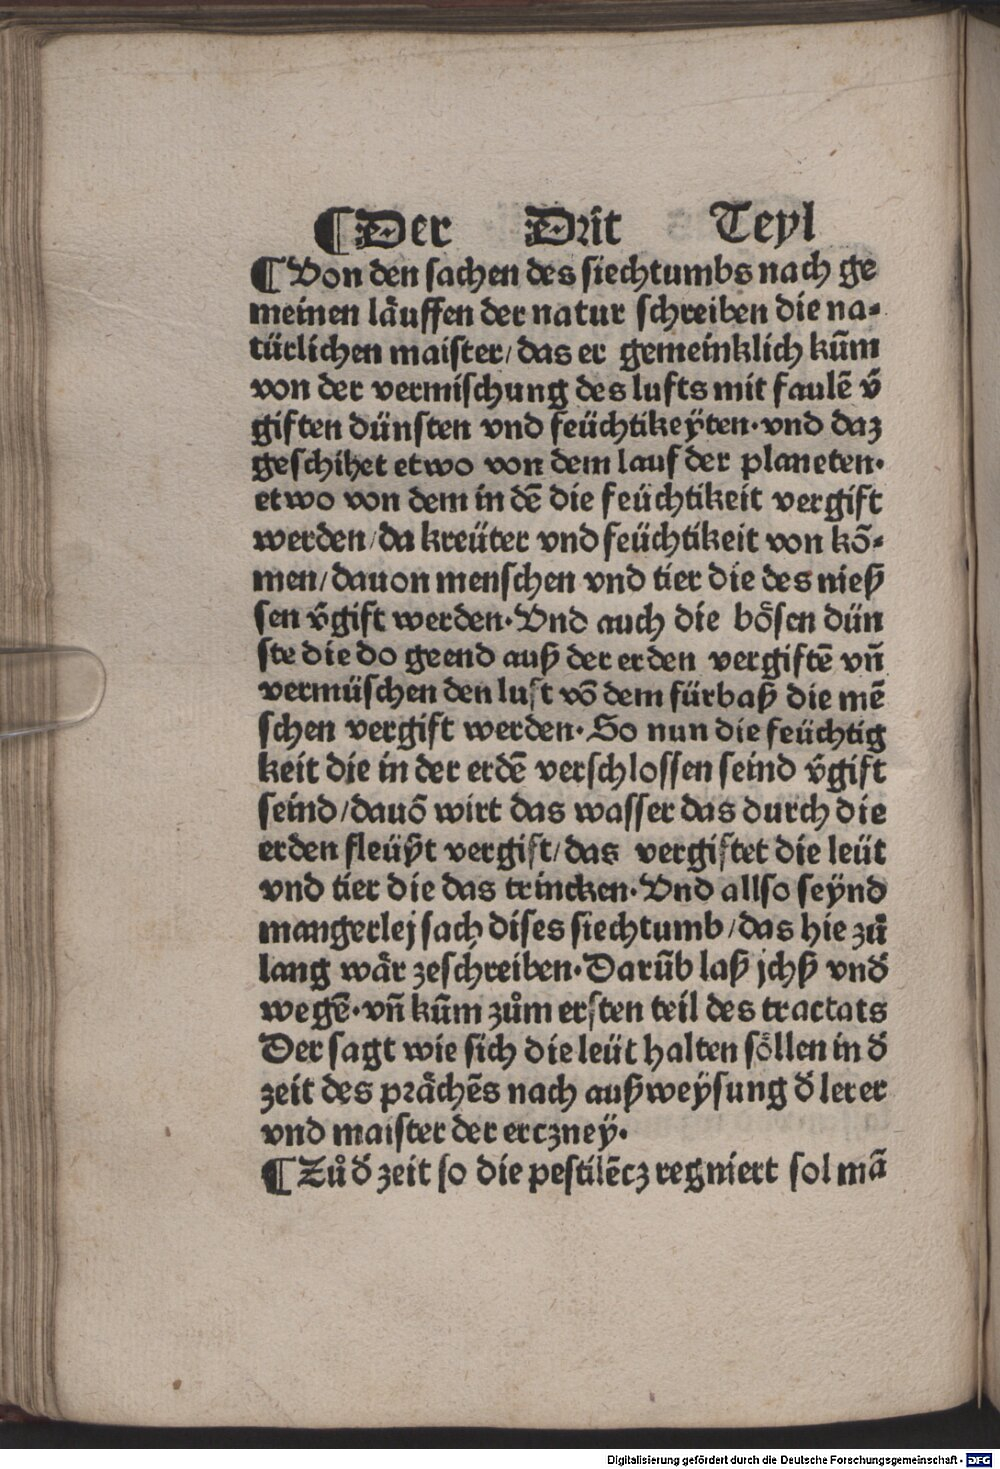 ¶ Der Drit Teyl
¶ Von den sachen des siechtumbs nach ge
meinen läuffen der natur schreiben die na-
türlichen maister/ das er gemeinklich kūm
von der vermischung des lufts mit faulē v̄
giften dünsten vnd feüchtikeÿten. vnd daz
geschihet etwo von dem lauf der planeten.
etwo von dem in dē die feüchtikeit vergift
werden/ da kreüter vnd feüchtikeit von kō-
men/ dauon menschen vnd tier die des nieß
sen v̄gift werden. Vnd auch die bösen dün
ste die do geend auß der erden vergiftē vn̄
vermüschen den luft vō dem fürbaß die mē
schen vergift werden. So nun die feüchtig
keit die in der erdē verschlossen seind v̄gift
seind/ dauō wirt das wasser das durch die
erden fleüßt vergift/ das vergiftet die leüt
vnd tier die das trincken. Vnd allso seÿnd
mangerlej sach dises siechtumb/ das hie zů
lang wär zeschreiben. Darūb laß jchß vnd̄
wegē. vn̄ kūm zům ersten teil des tractats
Der sagt wie sich die leüt halten söllen in d̄
zeit des prächēs nach außweÿsung d̄ lerer
vnd maister der erczneÿ.
¶ Zů d̄ zeit so die pestilēcz regniert sol mā
Digitalisierung gefördert durch die Deutsche Forschungsgemeinschaft - DFG